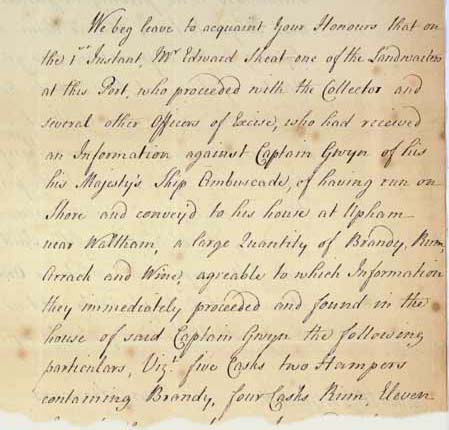 We beg leave to acquaint Your Honours that on
the 1st Instant, Mr Edward Sheat one of the Landwaiters
at this Port, who proceeded with the Collector and
several other Officers of Excise, who had received
an Information against Captain Gwyn of his
his Majesty's Ship Ambuscade, of having run on
Shore and convey'd to his house at Upham
near Waltham, a large Quantity of Brandy, Rum,
Arrack and Wine, agreable to which Information
they immediately proceeded and found in the
house of said Captain Gwyn the following
particulars, Vizt. five Casks two Hampers
containing Brandy, four Casks Rum, Eleven